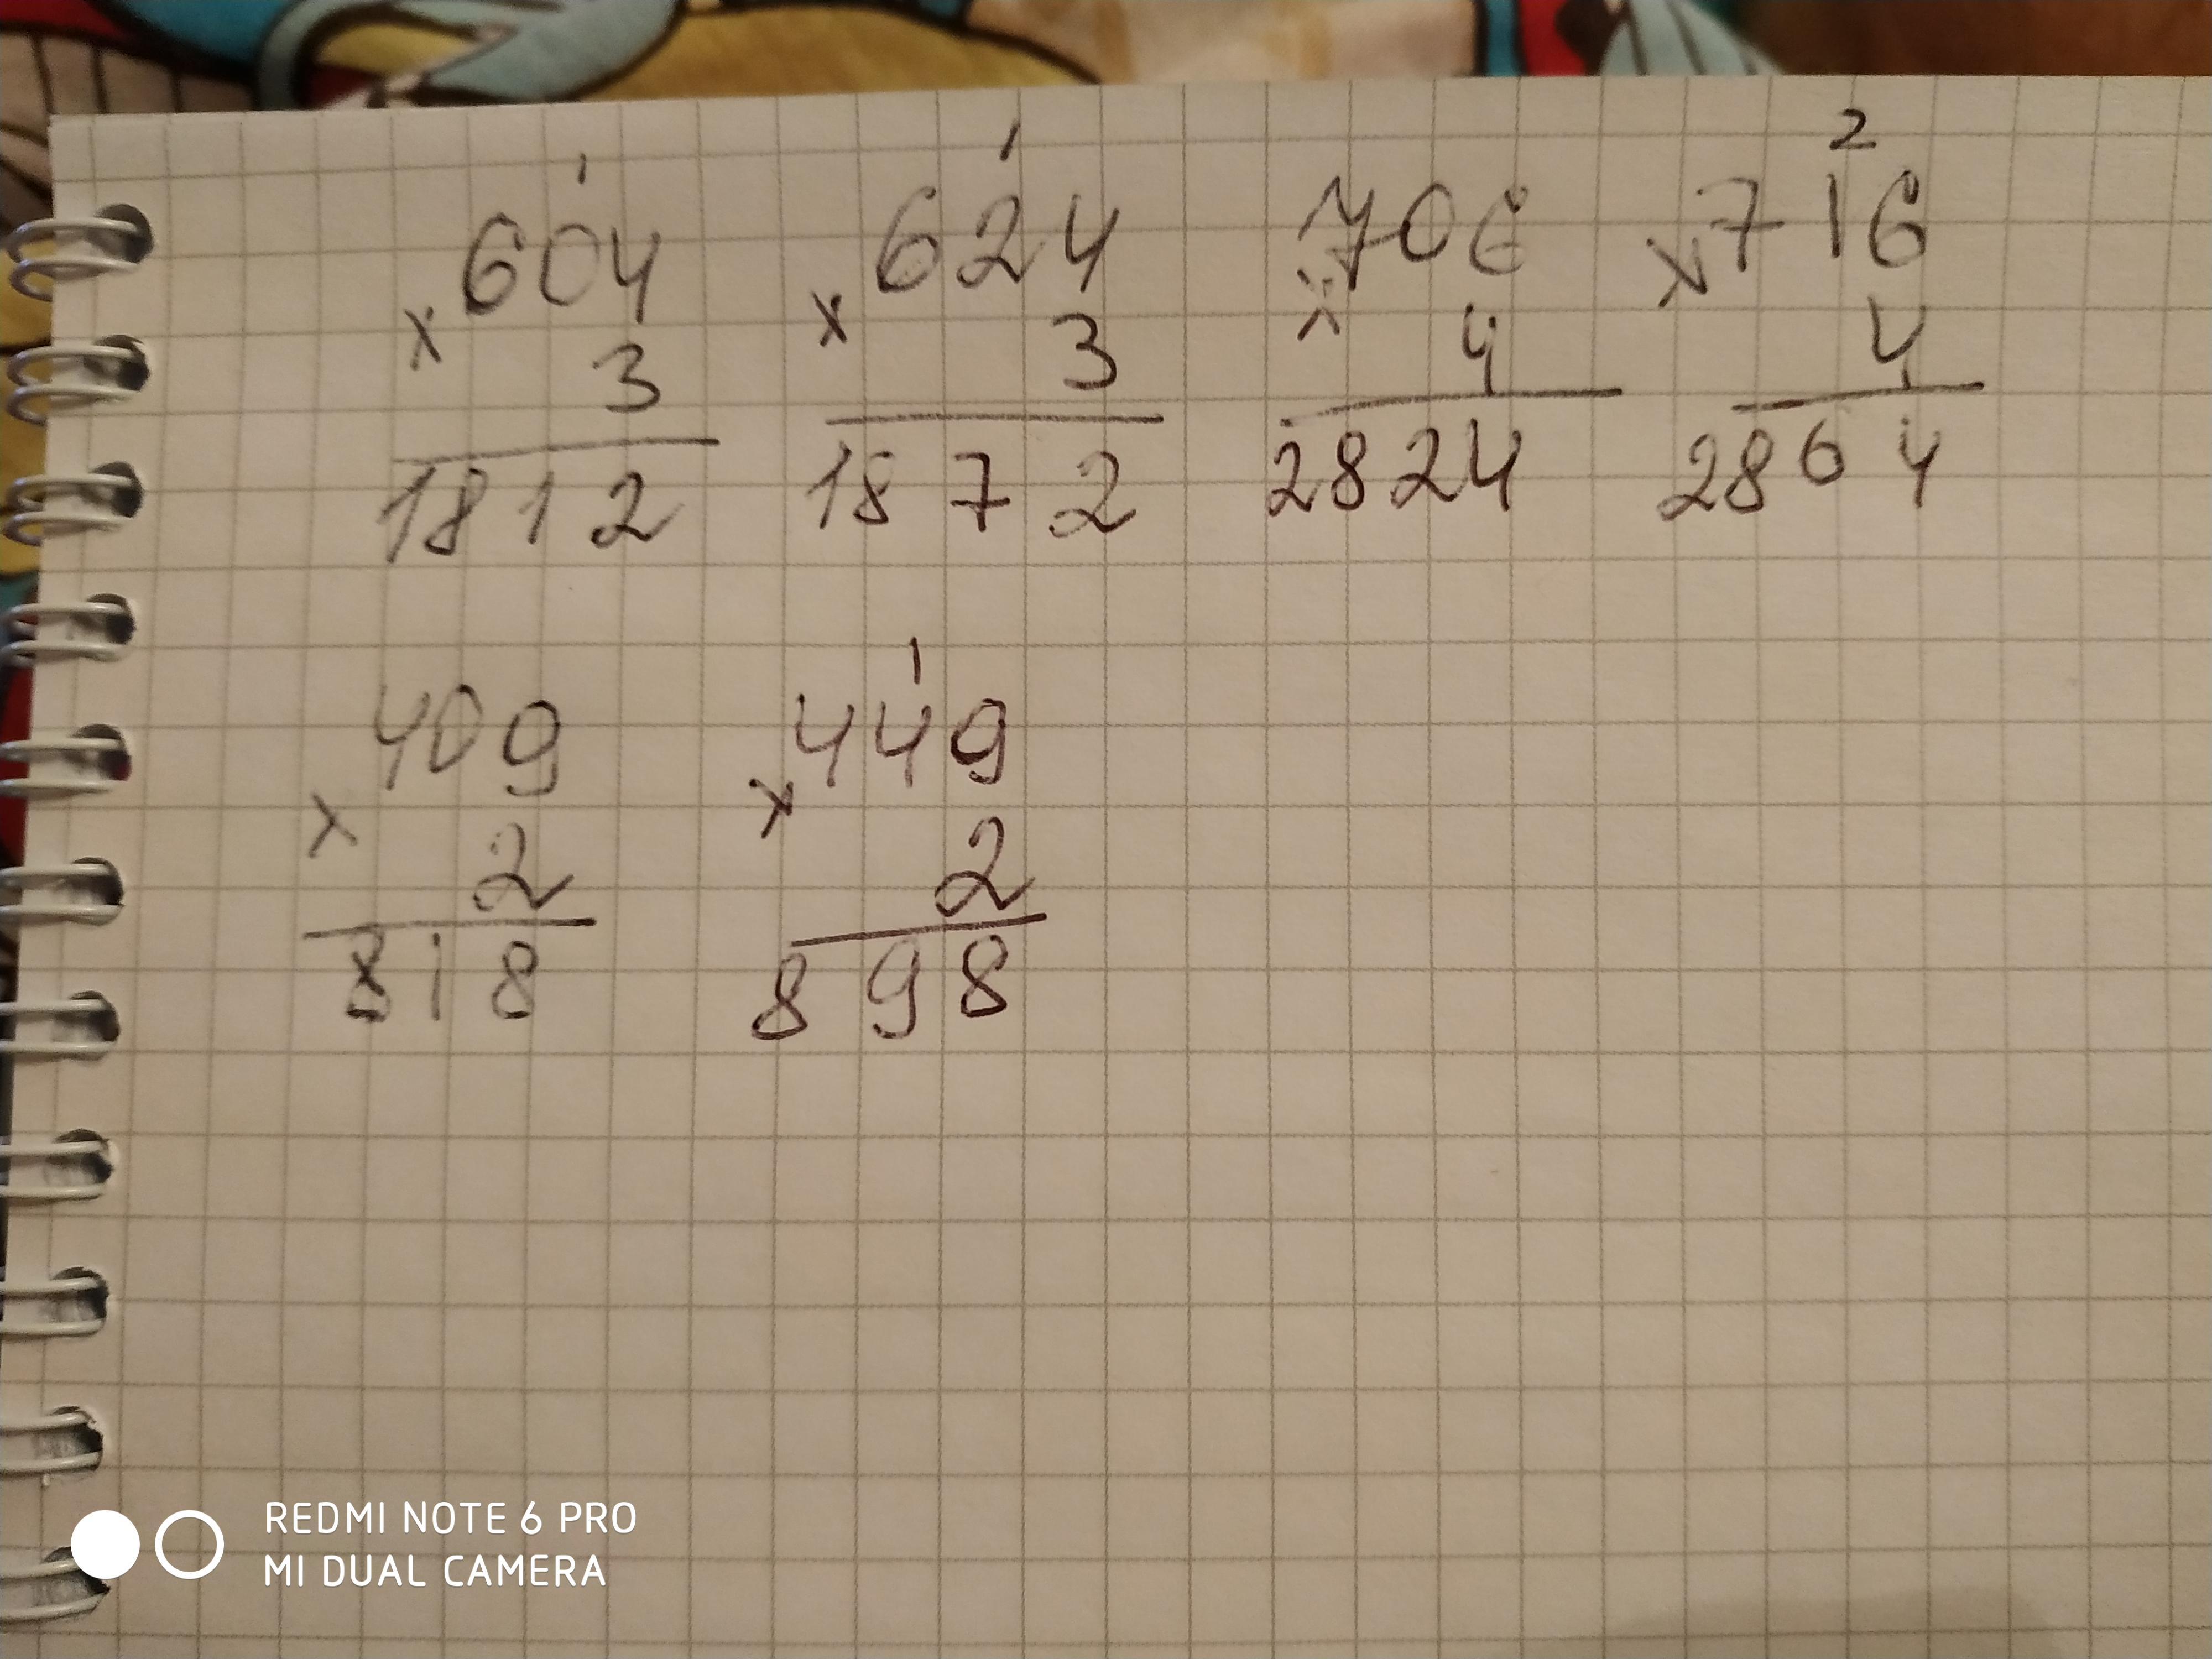 1 1 2
604 624 706 716
x 3 x 3 x 4 x 4
1812 1872 2824 2864
1
409 449
x 2 x 2
818 898
REDMI NOTE 6 PRO
MI DUAL CAMERA